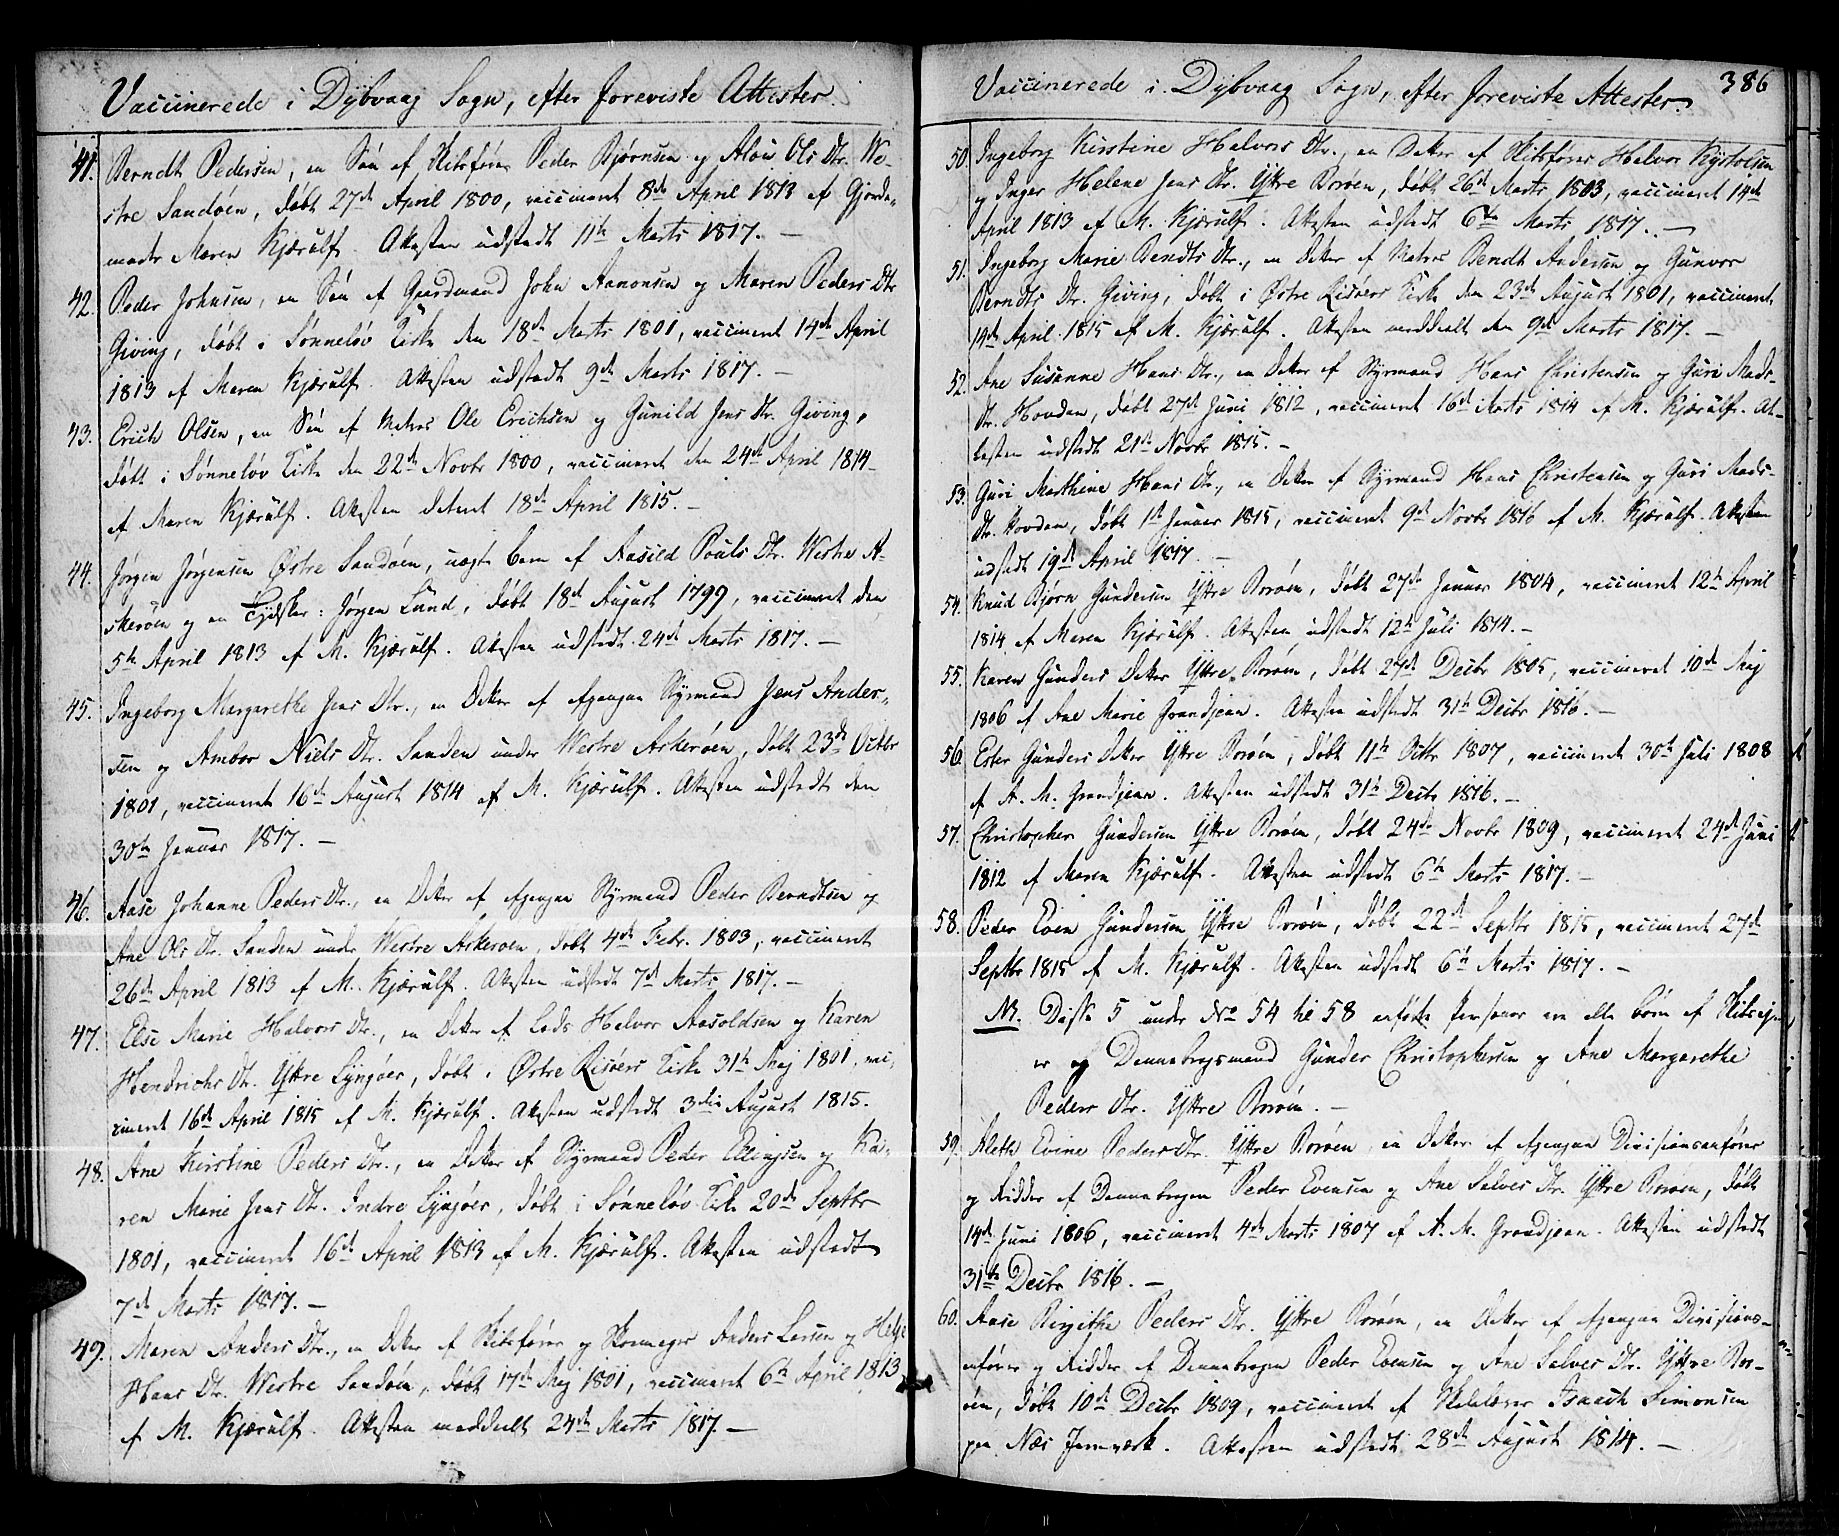 Vaccinerede i Dybvaag Sogn, efter foreviste Attester.
41. Berndt Pedersen, en Søn af Skibsfører Peder Bjørnsen og Alou Ols Dtr. We-
stre Sandøen, døbt 27de April 1800, vaccineret 8de April 1813 af Gjorde-
moder Maren Kjærulf. Attesten udstedt 11te Marts 1817.
42. Peder Johnsen, en Søn af Gaardmand John Aamonsen og Maren Peders Dtr
Giving, døbt i Sønneløv Kirke den 18de Marts 1801, vaccineret 14de April
1813 af Maren Kjærulf. Attesten udstedt 9de Marts 1817.
43. Erich Olsen, en Søn af Matros Ole Erichsen og Gunild Jens Dtr. Giving,
døbt i Sønneløv Kirke den 22de Novbr 1800, vaccineret den 24de April 1814
af Maren Kjærulf. Attesten dateret 18de April 1815.
44. Jørgen Jørgensen Østre Sandøen, uægte barn af Aasild Pouls Dtr. Westre A-
skerøen og en Tydsker: Jørgen Lund, døbt 18de August 1799, vaccineret den
5te April 1813 af M. Kjærulf. Attesten udstedt 24de Marts 1817.
45. Ingeborg Margarethe Jens Dtr., en Datter af afgangen Styrmand Jens Ander-
sen og Ambor Niels Dtr. Sanden under Westre Askerøen, døbt 23de Octbr
1801, vaccineret 16de August 1814 af M. Kjærulf. Attesten udstedt den
30te Januar 1817.
46. Aase Johanne Peders Dtr., en Datter af afgangen Styrmand Peder Berndtsen og
Ane Ols Dtr. Sanden under Westre Askerøen, døbt 4de Febr. 1803, vaccineret
26de April 1813 af M. Kjærulf. Attesten udstedt 7de Marts 1817.
47. Else Marie Halvors Dtr., en Datter af Lods Halvor Aasoldsen og Karen
Hendrichs Dtr. Yttre Lyngøer, døbt i Østre Risøers Kirke 31te Maj 1801, vac-
cineret 16de April 1815 af M. Kjærulf. Attesten udstedt 3die August 1815.
48. Ane Kirstine Peders Dtr., en Datter af Styrmand Peder Ellingsen og Ka-
ren Marie Jens Dtr. Indre Lyngøer, døbt i Sønneløv Kirke 20de Septbr
1801, vaccineret 16de April 1813 af M. Kjærulf. Attesten udstedt
7de Marts 1817.
49. Maren Anders Dtr., en Datter af Skibsfører og Anders Larsen og Helje
Hans Dtr. Westre Sandøen, døbt 17de Maj 1801, vaccineret 6te April 1813
af M. Kjærulf. Attesten meddeelt 24de Marts 1817.
Vaccinerede i Dybvaag Sogn, efter foreviste Attester. 386
50. Ingeborg Kirstine Halvors Dtr., en Datter af Skibsfører Halvor Kystolsen
og Inger Helene Jens Dtr. Yttre Borøen, døbt 26de Marts 1803, vaccineret 14de
April 1813 af M. Kjærulf. Attesten udstedt 6te Marts 1817.
51. Ingeborg Marie Bendts Dtr., en Datter af Matros Bendt Andersen og Gunvor
Berndts Dtr. Giving, døbt i Østre Risøers Kirke den 23de August 1801, vaccineret
14de April 1815 af M. Kjærulf. Attesten meddeelt den 9de Marts 1817.
52. Ane Susanne Hans Dtr., en Datter af Styrmand Hans Christensen og Guri Mads-
Dtr. Hovden, døbt 27de Juni 1812, vaccineret 16de Marts 1814 af M. Kjærulf. At-
testen udstedt 21de Novbr 1815.
53. Guri Marthine Hans Dtr., en Datter af Styrmand Hans Christensen og Guri Mads-
Dtr. Hovden, døbt 1te Januar 1815, vaccineret 9de Novbr 1816 af M. Kjærulf. Attesten
udstedt 19de April 1817.
54. Knud Bjørn Gundersen Yttre Borøen, døbt 27de Januar 1804, vaccineret 12te April
1814 af Maren Kjærulf. Attesten udstedt 12te Juli 1814.
55. Karen Gunders Datter Yttre Borøen, døbt 27de Decbr 1805, vaccineret 10de Maj
1806 af Ane Marie Grandjean. Attesten udstedt 31te Decbr 1816.
56. Ester Gunders Datter Yttre Borøen, døbt 11te Octbr 1807, vaccineret 30te Juli 1808
af A. M. Grandjean. Attesten udstedt 31te Decbr 1816.
57. Christopher Gundersen Yttre Borøen, døbt 24de Novbr 1809, vaccineret 24de Juni
1812 af Maren Kjærulf. Attesten udstedt 6te Marts 1817.
58. Peder Even Gundersen Yttre Borøen, døbt 22de Septbr 1815, vaccineret 27de
Septbr 1815 af M. Kjærulf. Attesten udstedt 6te Marts 1817.
NB. Disse 5 under No 54 til 58 anførte Personer ere alle børn af Skibsejer
er og Dannebrogsmand Gunder Christophersen og Ane Margarethe
Peders Dtr. Yttre Borøen.
59. Aleth Evine Peders Dtr. Yttre Borøen, en Datter af afgangen Divisionsanfører
og Ridder af Dannebrogen Peder Evensen og Ane Salves Dtr. Yttre Borøen, døbt
14de Juni 1806, vaccineret 4de Marts 1807 af A. M. Grandjean. Attesten udstedt
31te Decbr 1816.
60. Aase Birgithe Peders Dtr. Yttre Borøen, en Datter af afgangen Divisions-
anfører og Ridder af Dannebrogen Peder Evensen og Ane Salves Dtr. Yttre Bor-
øen, døbt 10de Decbr 1809, vaccineret af Skolelærer Isaach Simonsen
paa Næs Jernværk. Attesten udstedt 28de August 1814.